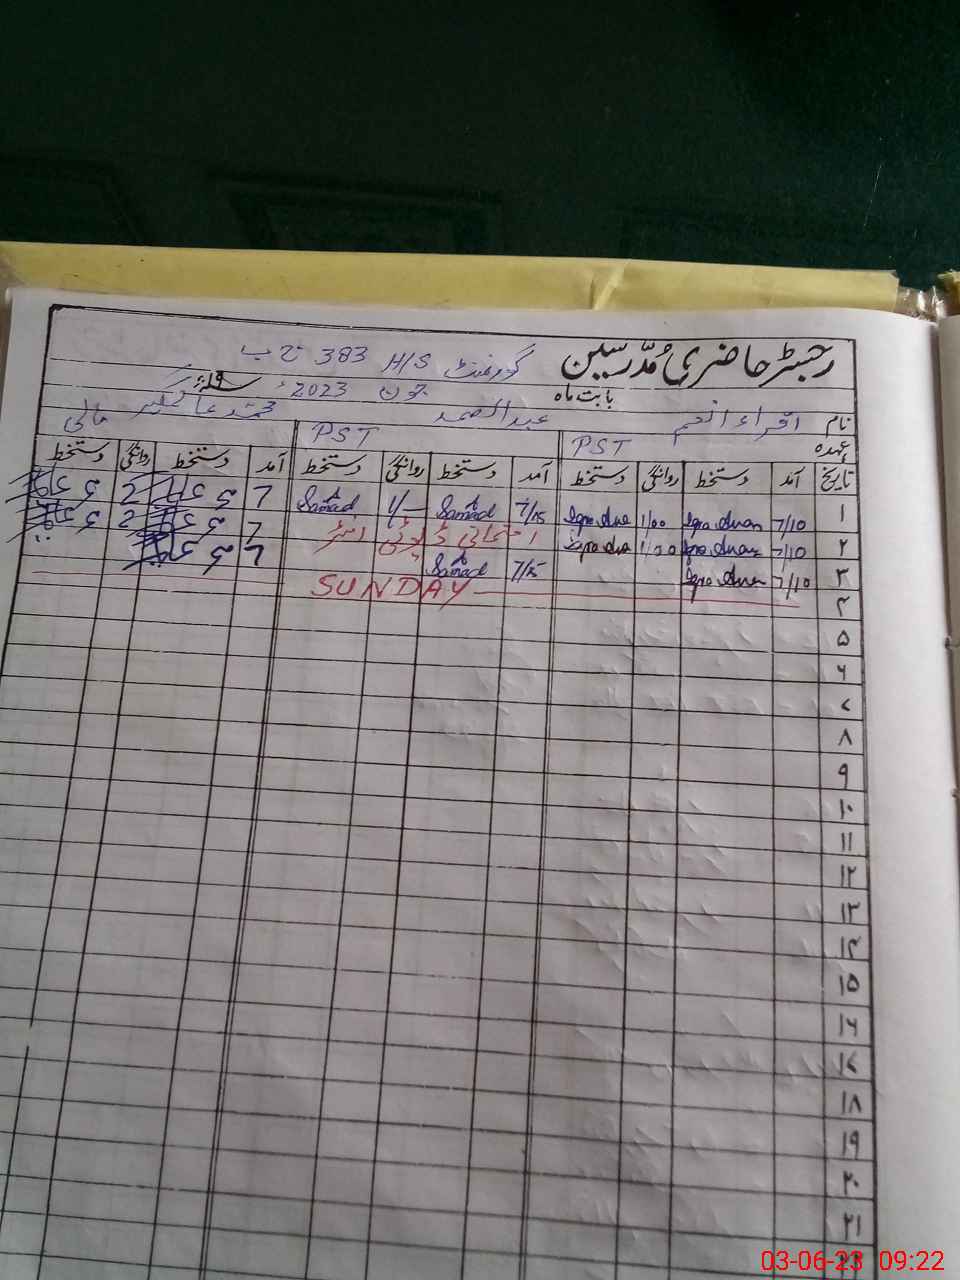 رجسٹر حاضری مُدرّسین گورنمنٹ H/S 383 ج ب
بابت ماہ جون 2023ء
نام اقراء انعم عبدالصمد محمد عالمگیر مالی
عہدہ PST PST
تاریخ آمد دستخط روانگی دستخط آمد دستخط روانگی دستخط آمد دستخط روانگی دستخط
۱ 7/10 1/00 7/15 Samad 1/- Samad 7
۲ 7/10 1/00 امتحانی ڈیوٹی 7
۳ 7/10 7/15 Samad 7
۴ SUNDAY
۵
۶
۷
۸
۹
۱۰
۱۱
۱۲
۱۳
۱۴
۱۵
۱۶
۱۷
۱۸
۱۹
۲۰
۲۱
03-06-23 09:22